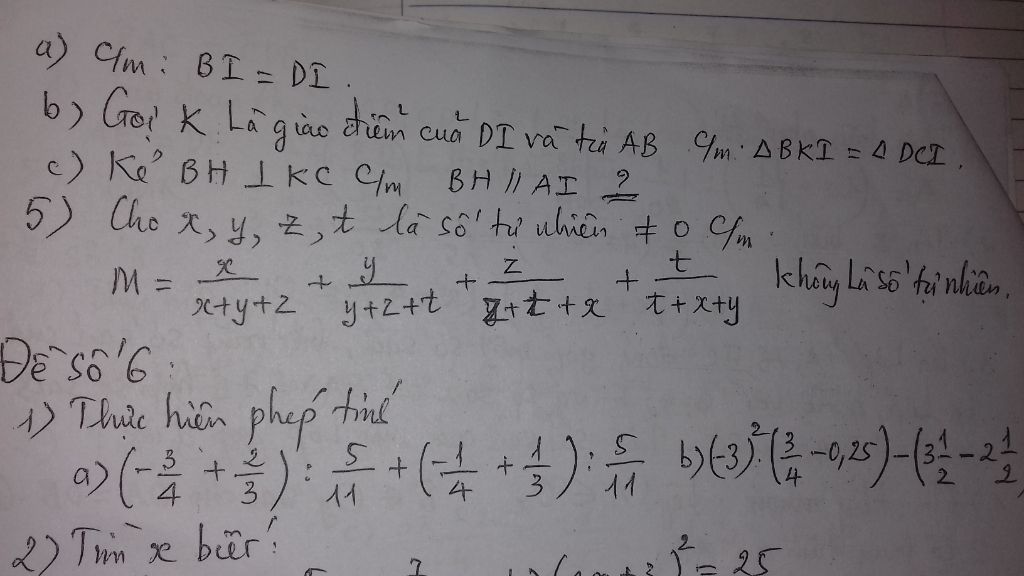 a) C/m : BI = DI.
b) Gọi K Là giao điểm của DI và tia AB C/m. Δ BKI = Δ DCI.
c) Kẻ BH ⊥ KC C/m BH // AI ?
5) Cho x, y, z, t là số tự nhiên ≠ 0 C/m.
M = x/(x+y+z) + y/(y+z+t) + z/(z+t+x) + t/(t+x+y) không Là số tự nhiên.
Đề số 6 :
1) Thực hiện phép tính
a) (-3/4 + 2/3) : 5/11 + (-1/4 + 1/3) : 5/11 b) (-3)². (3/4 - 0,25) - (3 1/2 - 2 1/2
2) Tìm x biết :
² = 25